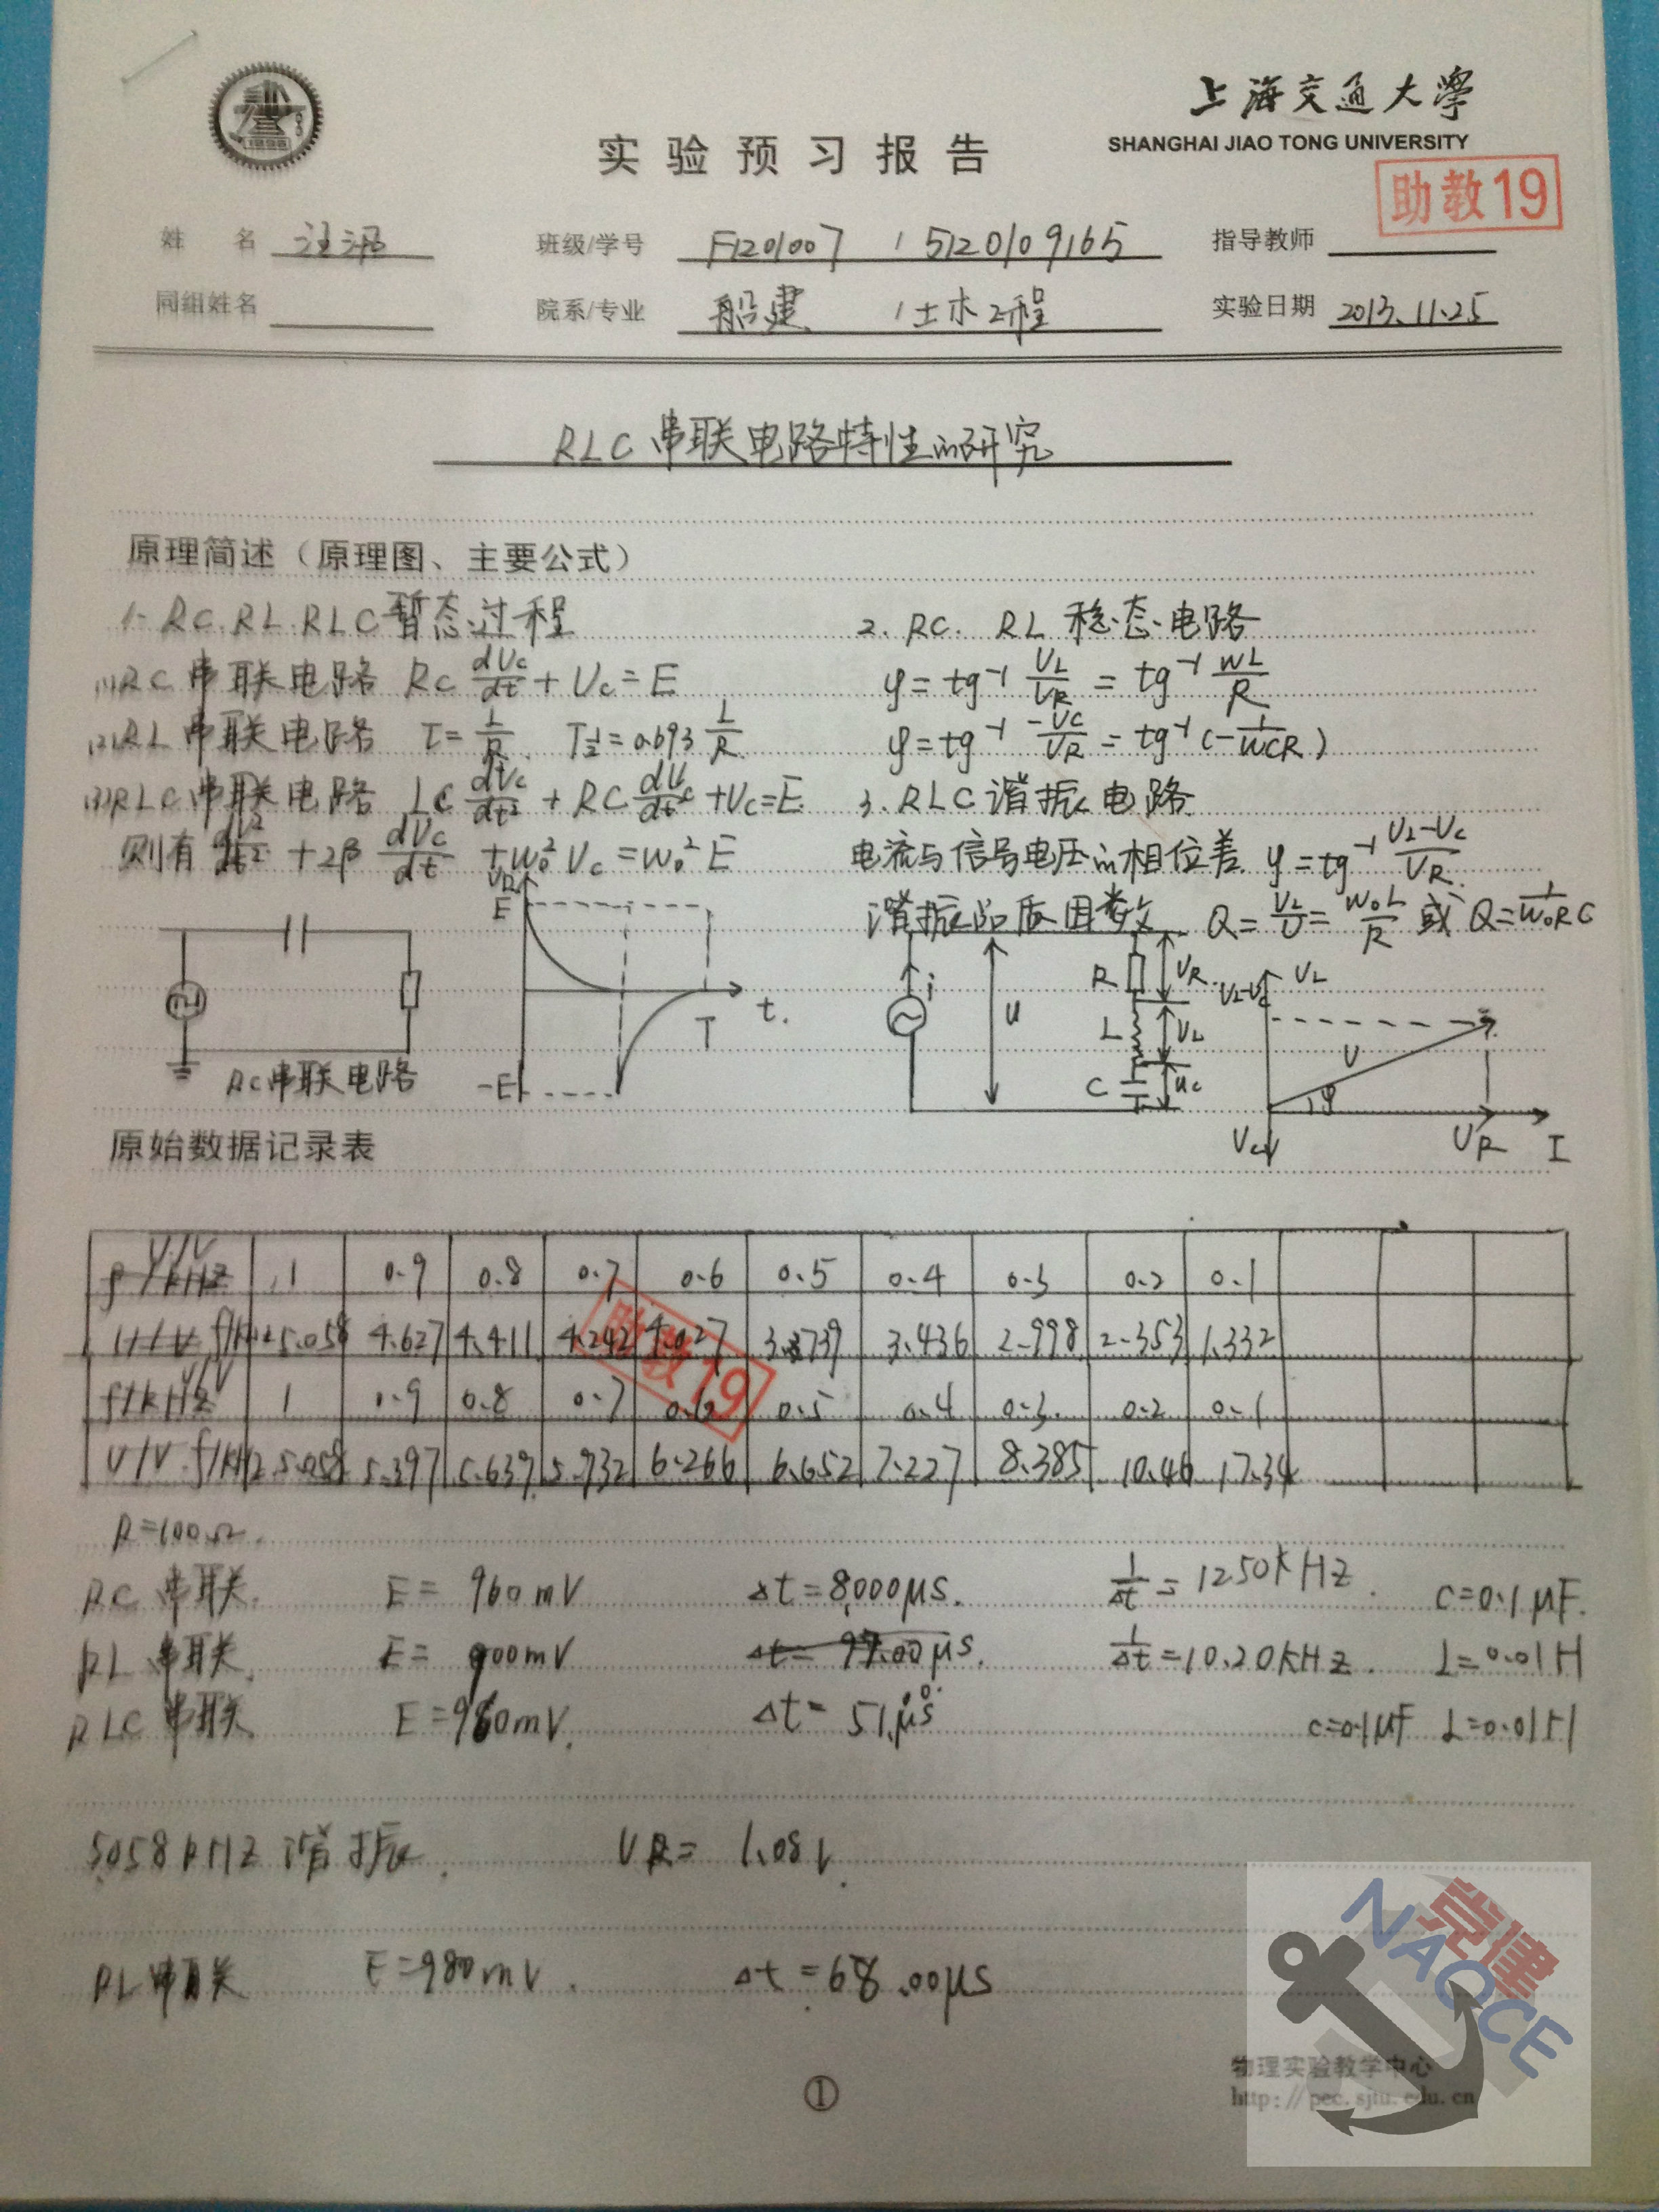 上海交通大學
SHANGHAI JIAO TONG UNIVERSITY
实验预习报告
助教19
姓 名 汪泓 班级/学号 F1201007 / 5120109165 指导教师
同组姓名 院系/专业 船建 / 土木工程 实验日期 2013.11.25
RLC串联电路特性的研究
原理简述（原理图、主要公式）
1. RC.RL.RLC暂态过程
(1)RC串联电路 RC dVc/dt + Vc = E
(2)RL串联电路 τ = L/R T½ = 0.693 L/R
(3)RLC串联电路 LC dVc/dt² + RC dVc/dt + Vc = E
则有 + 2β dVc/dt + ω₀² Vc = ω₀² E
2. RC. RL 稳态电路
φ = tg⁻¹ VL/VR = tg⁻¹ WL/R
φ = tg⁻¹ -VC/VR = tg⁻¹ (-1/WCR)
3. RLC谐振电路
电流与信号电压的相位差 φ = tg⁻¹ VL-Vc/VR
谐振品质因数 Q = VL/U = W₀L/R 或 Q = 1/W₀RC
RC串联电路
VR E -E T t.
i u R VR L VL C uc
VL-Vc VL U φ Vc VR I
原始数据记录表
V/V 1 0.9 0.8 0.7 0.6 0.5 0.4 0.3 0.2 0.1
f/kHz 5.058 4.627 4.411 4.242 4.027 3.739 3.436 2.998 2.353 1.332
V/V 1 0.9 0.8 0.7 0.6 0.5 0.4 0.3 0.2 0.1
f/kHz 5.058 5.397 5.639 5.932 6.266 6.652 7.227 8.385 10.46 17.34
助教19
R=100Ω.
RC串联. E = 960mV Δt = 8.000μs. 1/Δt = 1250kHz. C=0.1μF.
RL串联. E = 900mV Δt = 97.00μs. 1/Δt = 10.20kHz. L=0.01H
RLC串联 E = 980mV. Δt = 51.00μs C=0.1μF L=0.01H
5058kHz 谐振. VR = 1.08V.
RL串联 E = 980mV. Δt = 68.00μs
①
物理实验教学中心
http://pec.sjtu.edu.cn
党建
NAOCE